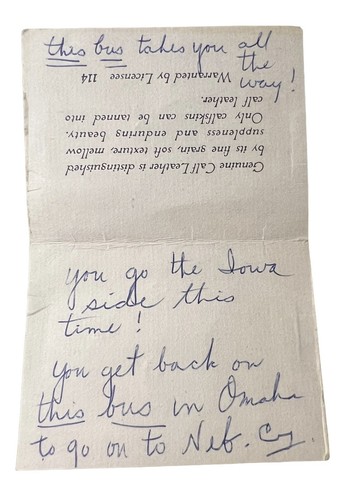 this bus takes you all
the
way!
Genuine Calf Leather is distinguished
by its fine grain, soft texture, mellow
suppleness and enduring beauty.
Only calfskins can be tanned into
calf leather.
Warranted by Licensee 114
you go the Iowa
side this
time!
You get back on
this bus in Omaha
to go on to Neb. Cy.